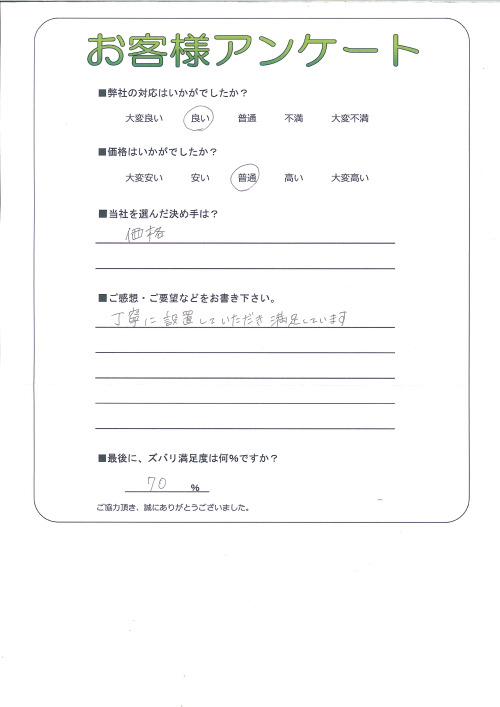 お客様アンケート
■弊社の対応はいかがでしたか？
大変良い 良い 普通 不満 大変不満
■価格はいかがでしたか？
大変安い 安い 普通 高い 大変高い
■当社を選んだ決め手は？
価格
■ご感想・ご要望などをお書き下さい。
丁寧に設置していただき満足しています
■最後に、ズバリ満足度は何%ですか？
70 %
ご協力頂き、誠にありがとうございました。